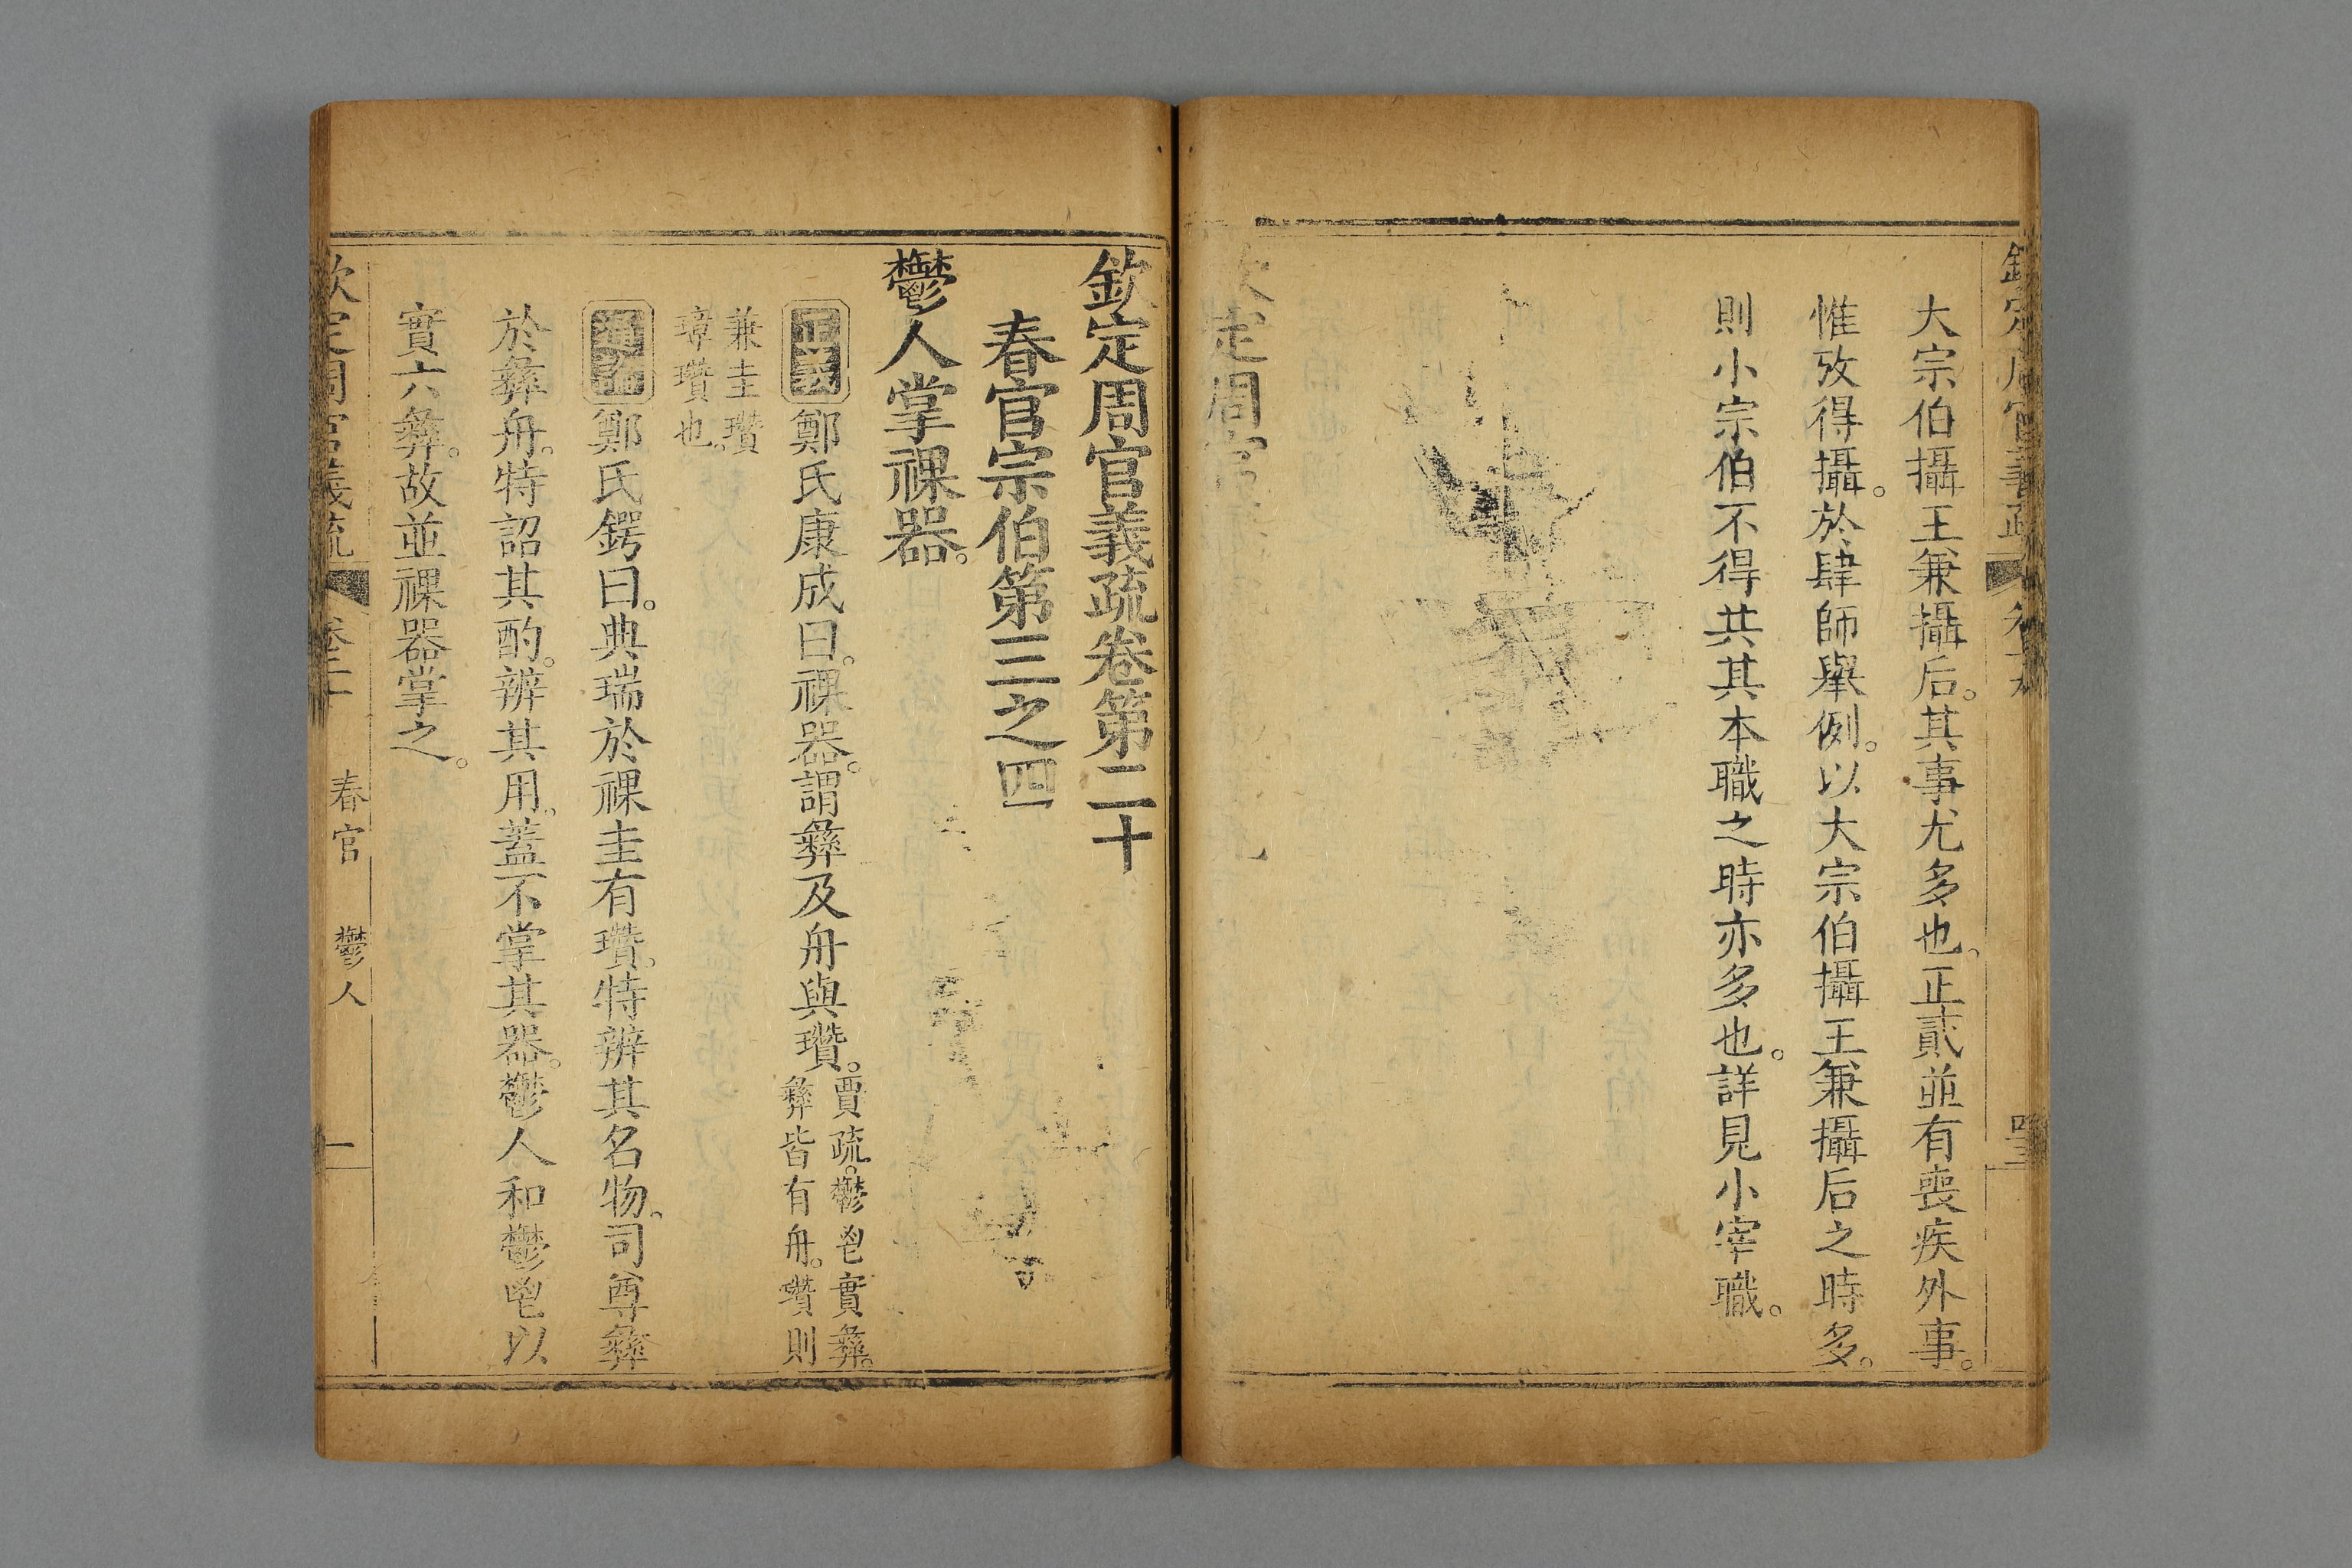 大宗伯攝王兼攝后。其事尤多也。正貳並有喪疾外事。
惟攷得攝。於肆師舉例。以大宗伯攝王兼攝后之時多。
則小宗伯不得共其本職之時亦多也。詳見小宰職。
欽定周官義疏卷第二十
春官宗伯第三之四
鬱人掌祼器。
正義鄭氏康成曰。祼器。謂彝及舟與瓚。賈疏。鬱鬯實彝。
彝皆有舟。瓚則
兼圭瓚
璋瓚也。
通論鄭氏鍔曰。典瑞於祼圭有瓚。特辨其名物。司尊彝
於彝舟。特詔其酌。辨其用。蓋不掌其器。鬱人和鬱鬯以
實六彝。故並祼器掌之。
欽定周官義疏 卷二十 春官 鬱人 一